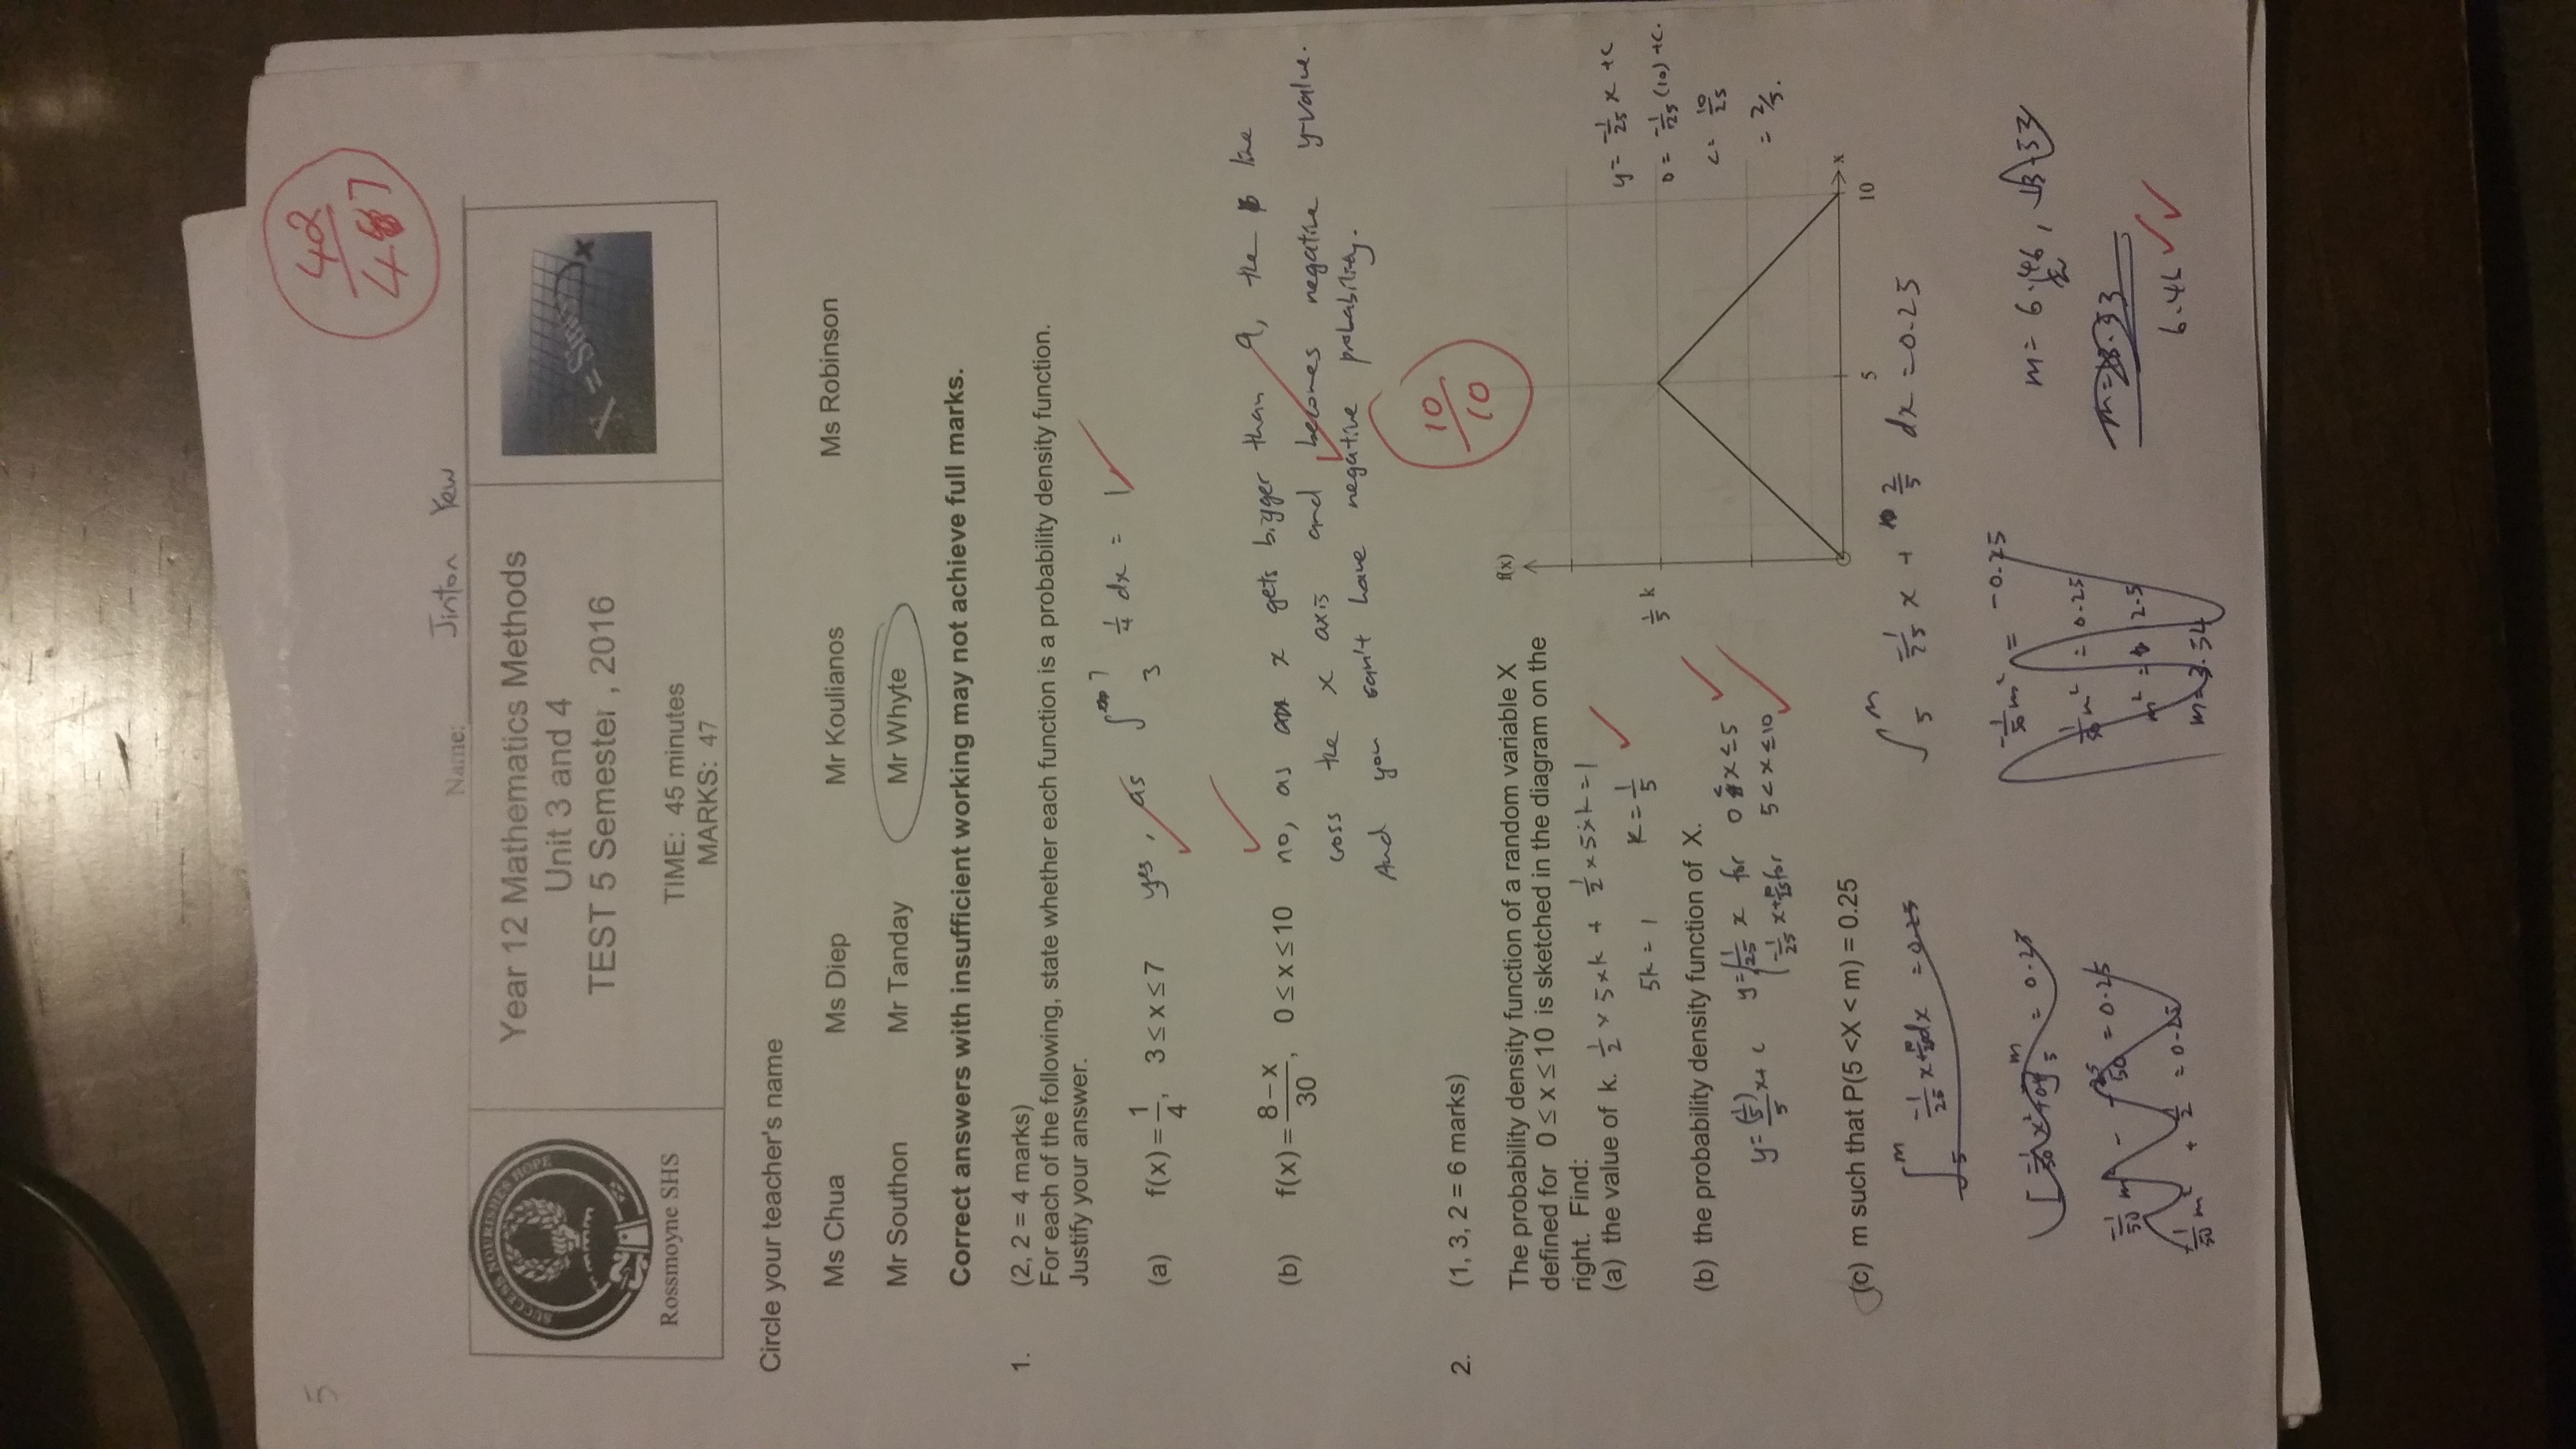 5
42
47
Name: Jinton Yew
SUCCESS NOURISHES HOPE
Rossmoyne SHS
Year 12 Mathematics Methods
Unit 3 and 4
TEST 5 Semester , 2016
TIME: 45 minutes
MARKS: 47
X = Sin
Circle your teacher's name
Ms Chua Ms Diep Mr Koulianos Ms Robinson
Mr Southon Mr Tanday Mr Whyte
Correct answers with insufficient working may not achieve full marks.
1. (2, 2 = 4 marks)
For each of the following, state whether each function is a probability density function.
Justify your answer.
(a) f(x) = 1/4, 3 ≤ x ≤ 7 yes, as ∫₃⁷ 1/4 dx = 1
(b) f(x) = (8 − x)/30, 0 ≤ x ≤ 10 no, as x gets bigger than 9, the line
cross the x axis and becomes negative y-value.
And you can't have negative probability.
10
10
2. (1, 3, 2 = 6 marks)
The probability density function of a random variable X
defined for 0 ≤ x ≤ 10 is sketched in the diagram on the
right. Find:
(a) the value of k. 1/2 × 5 × k + 1/2 × 5 × k = 1
5k = 1 k = 1/5
(b) the probability density function of X.
y = (1/5)/5 x + c y = 1/25 x for 0 ≤ x ≤ 5
-1/25 x + 10/25 for 5 < x ≤ 10
f(x)
1/5 k
5 10 x
y = -1/25 x + c
0 = -1/25 (10) + c.
c = 10/25
= 2/5.
(c) m such that P(5 < X < m) = 0.25
∫₅ᵐ -1/25 x + 10/25 dx = 0.25
∫₅ᵐ -1/25 x + 2/5 dx = 0.25
= 0.25
-1/50 m² - -25/50 = 0.25
-1/50 m² + 1/2 = 0.25
-1/50 m² = -0.25
1/50 m² = 0.25
m² = 12.5
m = 3.54
m = 6.46, 13.53
m = 13.53
6.46